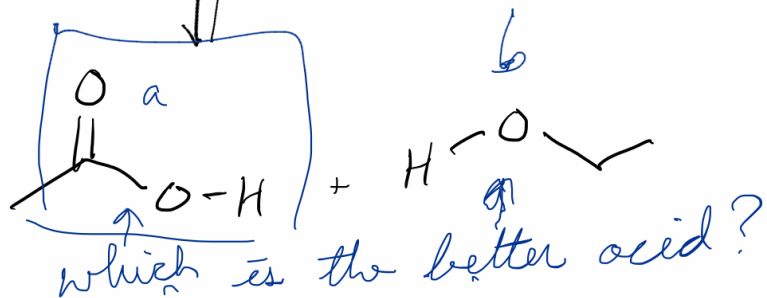 b
O a
O
H
O-H + 
which is the better acid?